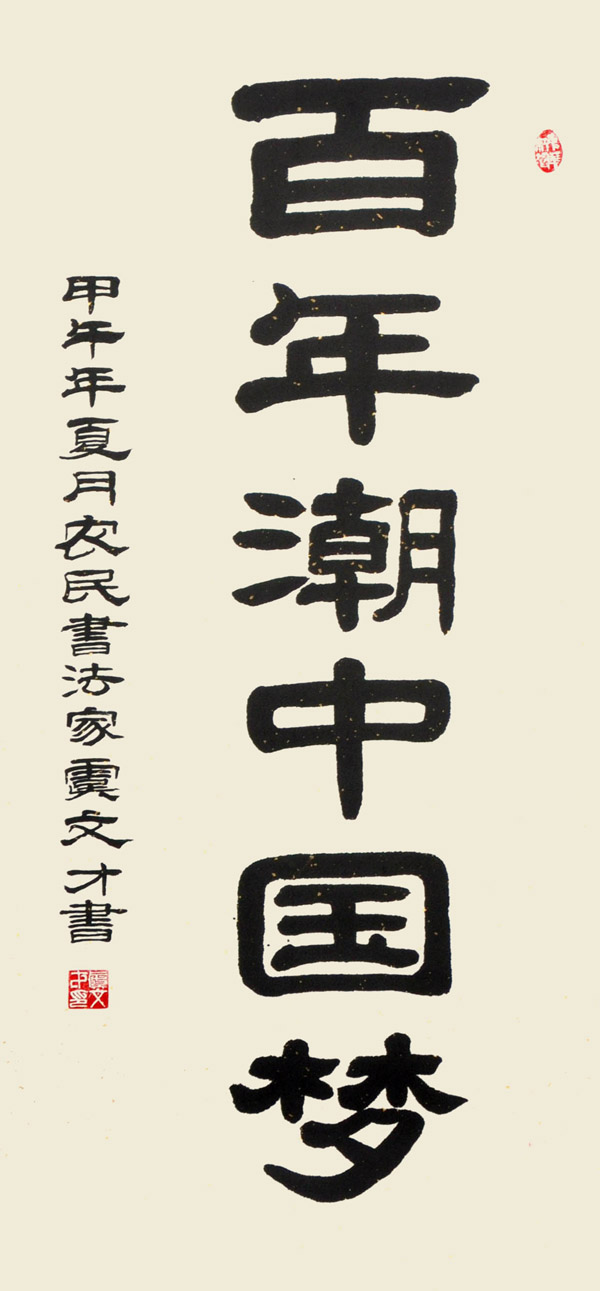 百年潮中国梦
甲午年夏月农民書法家虞文才書